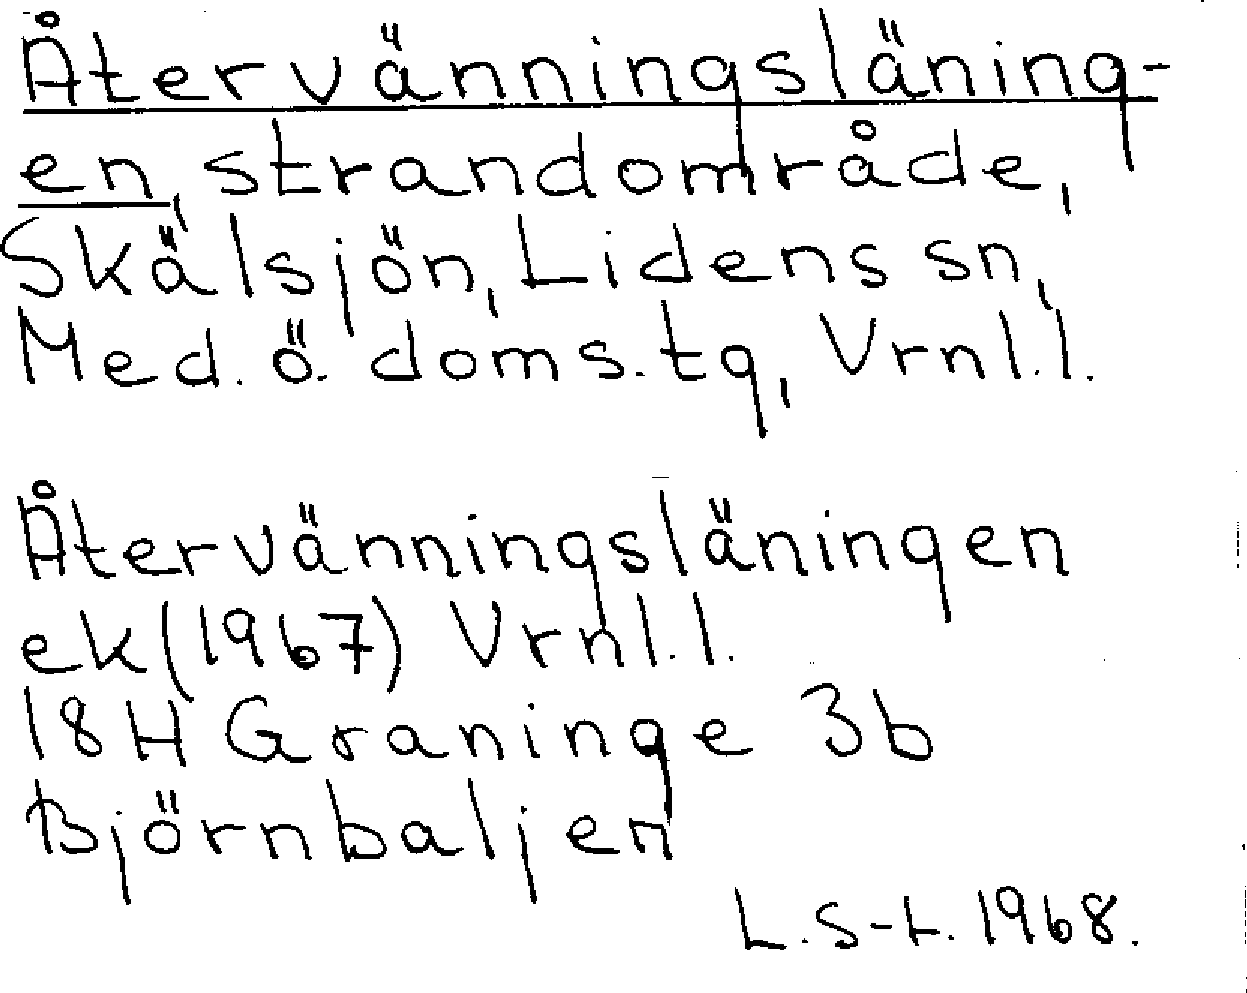 Återvänningsläning-
en, strandområde,
Skälsjön, Lidens sn,
Med. ö. doms.tg, Vrnl.l.
Återvänningsläningen
ek(1967) Vrnl.l.
18H Graninge 3b
Björnbaljen
L.S-L. 1968.